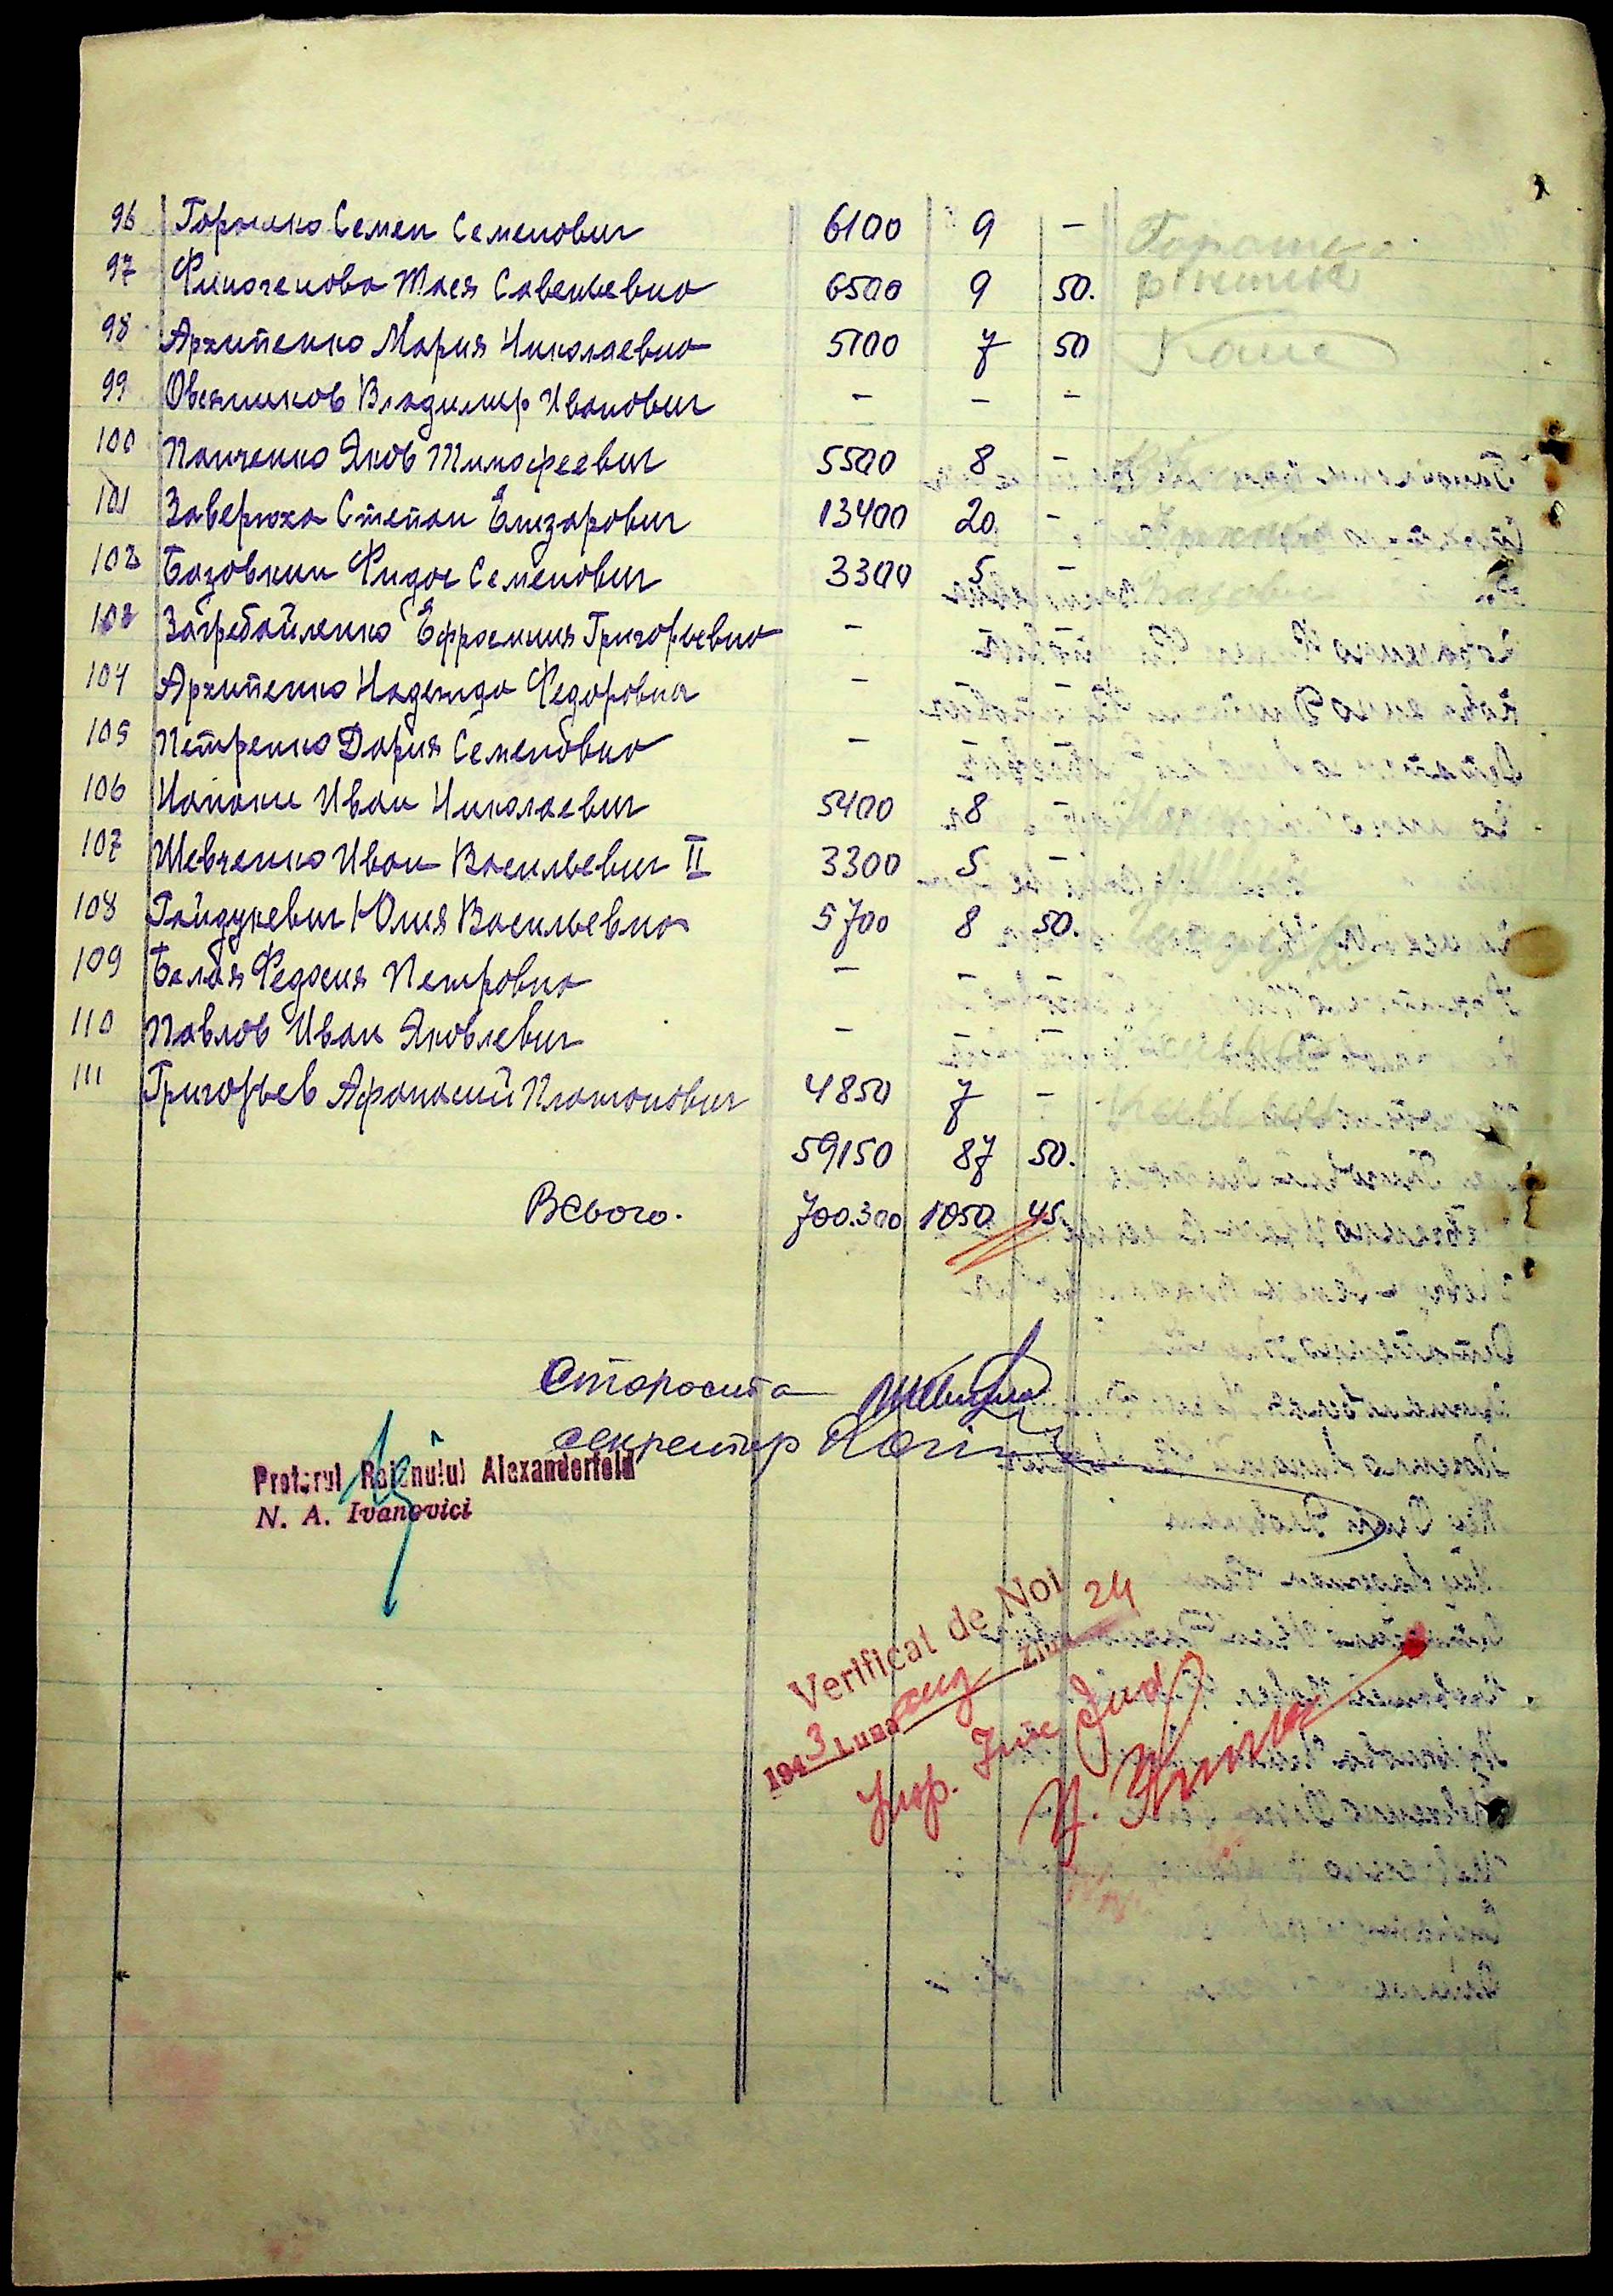 96 Горошко Семен Семенович 6100 9 -
97 Финогенова Тася Савельевна 6500 9 50.
98 Архипенко Мария Николаевна 5100 7 50
99 Овсяников Владимир Иванович - - -
100 Панченко Яков Тимофеевич 5500 8 -
101 Заверюха Степан Елизарович 13400 20 -
102 Базовкин Фидос Семенович 3300 5 -
103 Загребайленко Ефросиния Григорьевна - - -
104 Архипенко Надежда Федоровна - - -
105 Петренко Дария Семеновна - - -
106 Иван Николаевич 5400 8 -
107 Шевченко Иван Васильевич II 3300 5 -
108 Гайдукевич Юлия Васильевна 5700 8 50.
109 Белая Федосия Петровна - - -
110 Павлов Иван Яковлевич - - -
111 Григорьев Афанасий Платонович 4850 7 -
59150 87 50.
Всього. 700.300 1050 45
Староста
секретар
Pretorul Raionului Alexanderfeld
N. A. Ivanovici
Verificat de Noi
1943 Luna aug Ziua 24